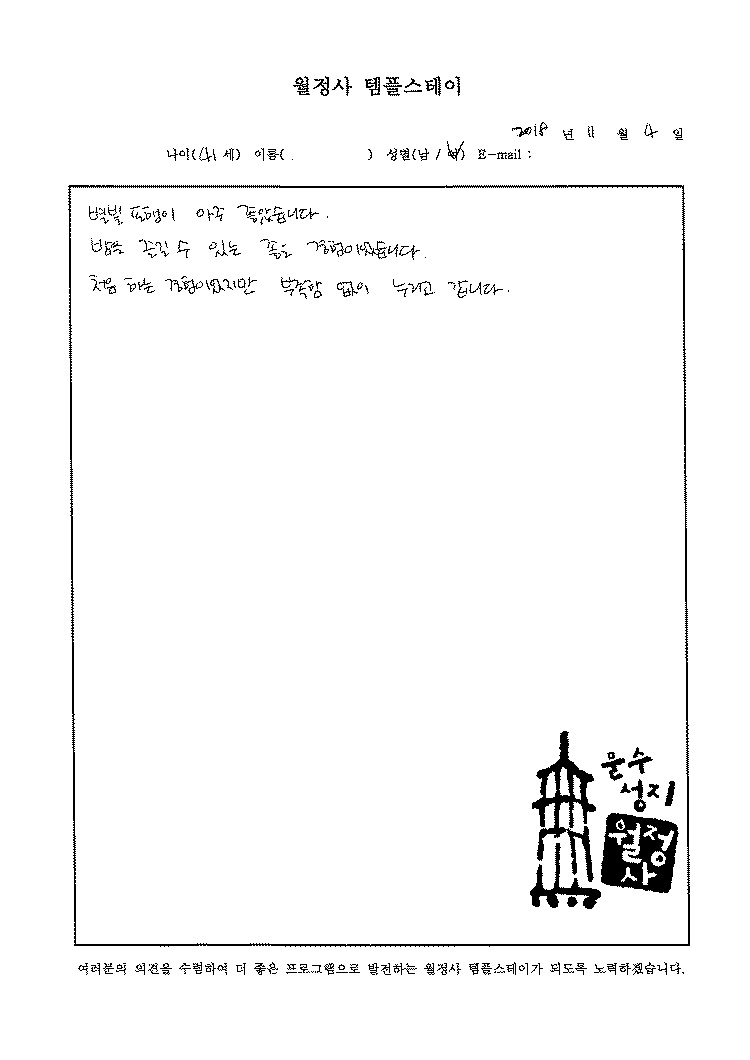 월정사 템플스테이
2018 년 11 월 4 일
나이(41 세) 이름( ) 성별(남 / 여) E-mail :
별빛 포행이 아주 좋았습니다.
밤을 즐길 수 있는 좋은 경험이었습니다.
처음 하는 경험이었지만 부족함 없이 누리고 갑니다.
문수
성지
월정
사
여러분의 의견을 수렴하여 더 좋은 프로그램으로 발전하는 월정사 템플스테이가 되도록 노력하겠습니다.